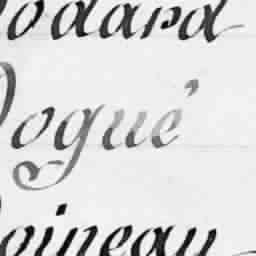 odard
ogué
oineau